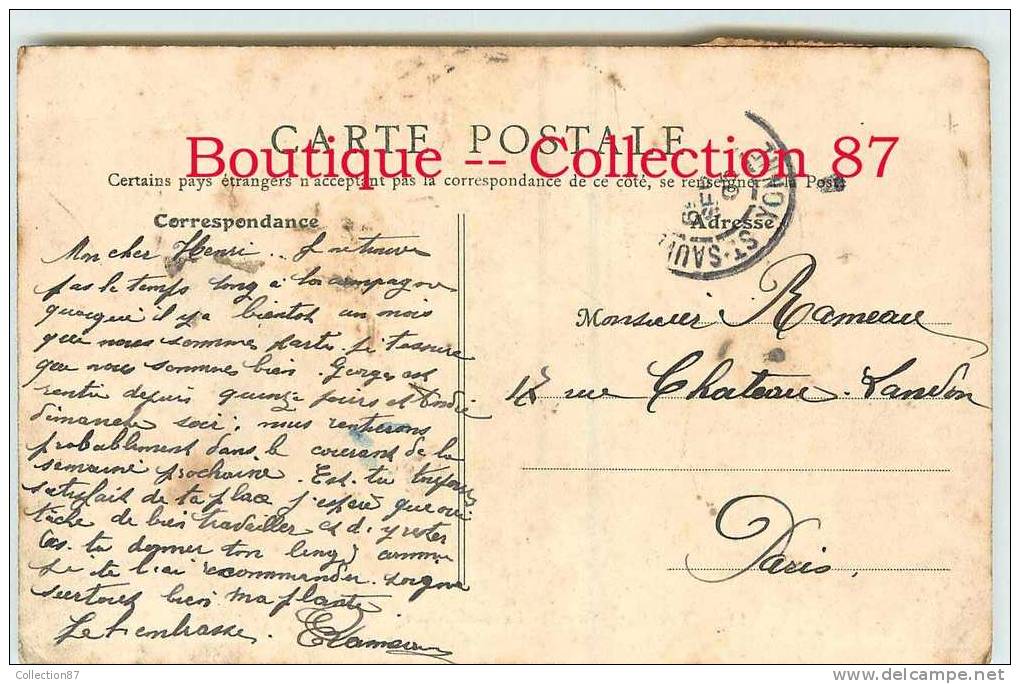 CARTE POSTALE
Boutique -- Collection 87
Certains pays étrangers n'acceptent pas la correspondance de ce côté, se renseigner à la Poste
Correspondance
Adresse
ST-SAUV
YONNE
Mon cher Henri .. Je ne trouve
pas le temps long à la campagne
quoique il y a bientot un mois
que nous sommes partis. Je t'assure
que nous sommes bien. Georges est
rentré depuis quinze jours et André
dimanche soir, nous rentrerons
probablement dans le courant de la
semaine prochaine. Est-tu toujours
satisfait de ta place j'espère que oui
tache de bien travailler et d'y rester
as-tu donner ton linge comme
je te l'ai recommander. soigne
surtout bien ma plante
Je t'embrasse. Rameau
Monsieur Rameau
rue Chateau-Landon
Paris
Collection87
delcampe.net